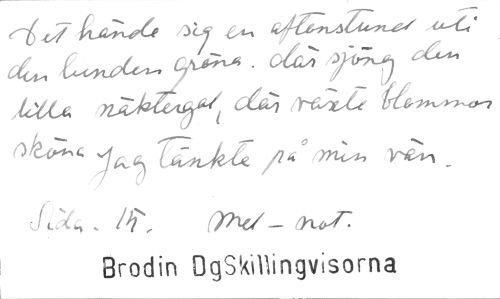 Det hände sig en aftonstund uti
den lunden gröna. där sjöng den
lilla näktergal, där växte blommor
sköna Jag tänkte på min vän.
Sida. 15. Mel - not.
Brodin DgSkillingvisorna